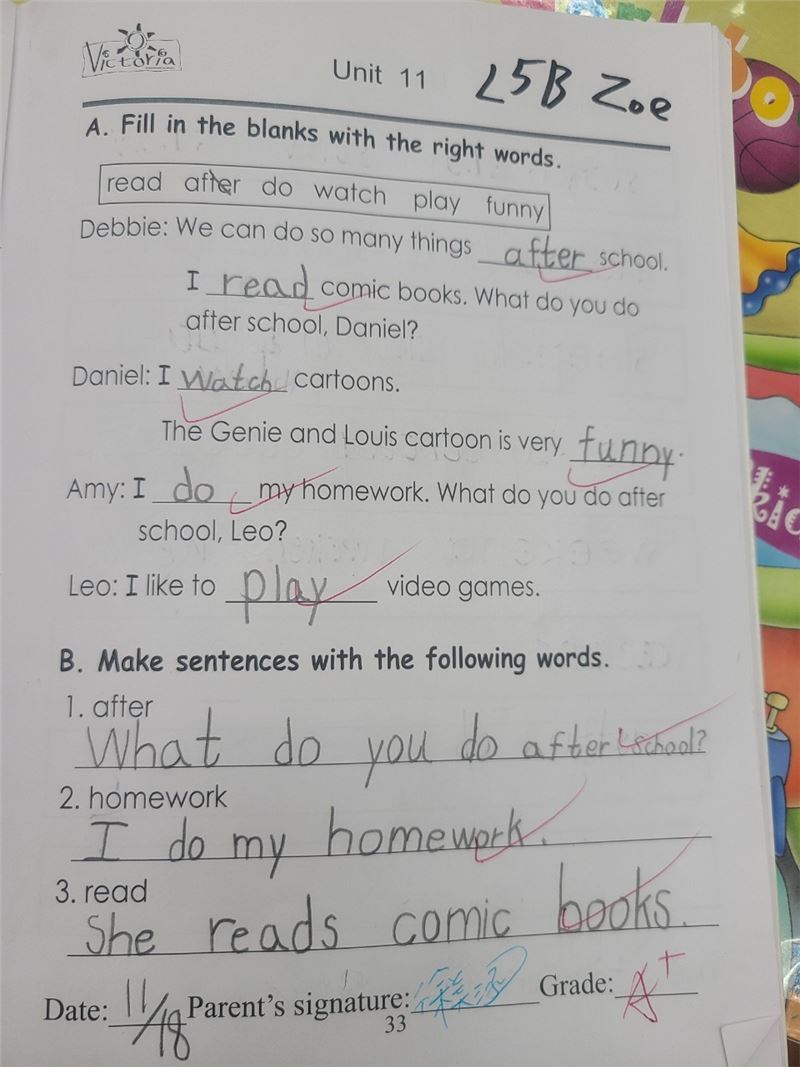 Victoria
Unit 11 L5B Zoe
A. Fill in the blanks with the right words.
read after do watch play funny
Debbie: We can do so many things after school.
I read comic books. What do you do
after school, Daniel?
Daniel: I watch cartoons.
The Genie and Louis cartoon is very funny.
Amy: I do my homework. What do you do after
school, Leo?
Leo: I like to play video games.
B. Make sentences with the following words.
1. after
What do you do after school?
2. homework
I do my homework.
3. read
She reads comic books.
Date: 11/18 Parent's signature: Grade: A+
33